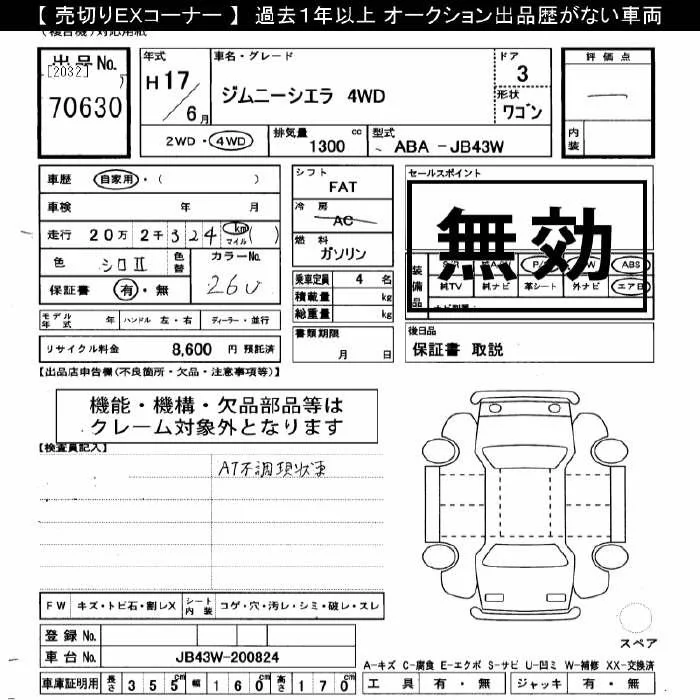 【 売切りEXコーナー 】 過去1年以上 オークション出品歴がない車両
(複合機)対応用紙
出品No.
[2032]
70630
年式
H17/6月
車名・グレード
ジムニーシエラ 4WD
ドア
3
形状
ワゴン
評価点
内装
2WD・4WD
排気量 1300 cc
型式 ABA -JB43W
車歴 自家用・( )
車検 年 月
走行 20万 2千 3 2 4 km マイル ( )
色 シロII 色替
カラーNo. 26U
保証書 有・無
シフト
FAT
冷房
AC
燃料
ガソリン
乗車定員 4 名
積載量 kg
総重量 kg
セールスポイント
無効
装備品
ABS
純TV 純ナビ 革シート 外ナビ エアB
モデル年式 年 ハンドル 左・右 ディーラー・並行
リサイクル料金 8,600 円 預託済
書類期限
月 日
後日品
保証書 取説
【出品店申告欄(不良箇所・欠品・注意事項等)】
機能・機構・欠品部品等は
クレーム対象外となります
【検査員記入】
AT不調現状車
FW キズ・トビ石・割レX シート内装 コゲ・穴・汚レ・シミ・破レ・スレ
登録No.
車台No. JB43W-200824
車庫証明用 長さ 355cm 幅 160cm 高さ 170cm
スペア
A-キズ C-腐食 E-エクボ S-サビ U-凹ミ W-補修 XX-交換済
工具 有・無 ジャッキ 有・無